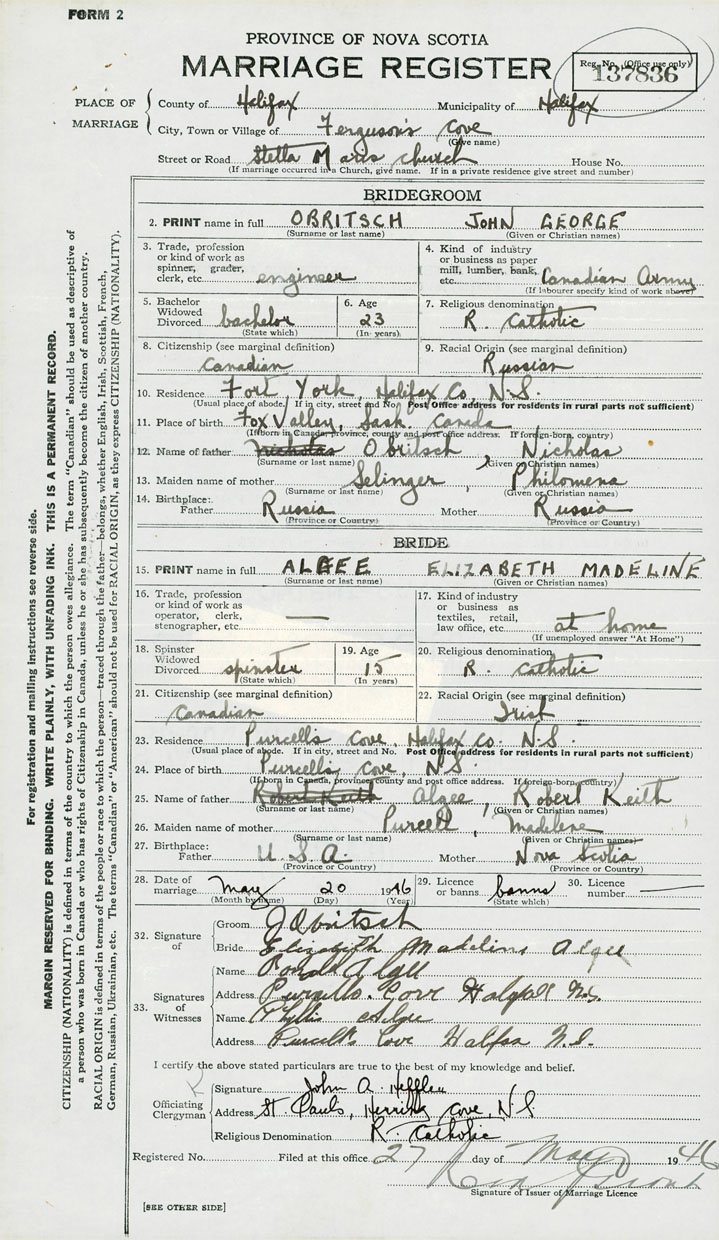 FORM 2
PROVINCE OF NOVA SCOTIA
MARRIAGE REGISTER
Reg. No. (Office use only)
137836
PLACE OF MARRIAGE
County of Halifax Municipality of Halifax
City, Town or Village of Ferguson's Cove
(Give name)
Street or Road Stella Maris church House No.
(If marriage occurred in a Church, give name. If in a private residence give street and number)
BRIDEGROOM
2. PRINT name in full OBRITSCH JOHN GEORGE
(Surname or last name) (Given or Christian names)
3. Trade, profession or kind of work as spinner, grader, clerk, etc. engineer
4. Kind of industry or business as paper mill, lumber, bank, etc. Canadian Army
(If labourer specify kind of work above)
5. Bachelor Widowed Divorced bachelor
(State which)
6. Age 23
(In years)
7. Religious denomination R. Catholic
8. Citizenship (see marginal definition) Canadian
9. Racial Origin (see marginal definition) Russian
10. Residence Fort York, Halifax Co, N.S.
(Usual place of abode. If in city, street and No. Post Office address for residents in rural parts not sufficient)
11. Place of birth Fox Valley, Sask. Canada
(If born in Canada, province, county and post office address. If foreign-born, country)
12. Name of father Nicholas Obritsch, Nicholas
(Surname or last name) (Given or Christian names)
13. Maiden name of mother Selinger, Philomena
(Surname or last name) (Given or Christian names)
14. Birthplace: Father Russia Mother Russia
(Province or Country) (Province or Country)
BRIDE
15. PRINT name in full ALGEE ELIZABETH MADELINE
(Surname or last name) (Given or Christian names)
16. Trade, profession or kind of work as operator, clerk, stenographer, etc. —
17. Kind of industry or business as textiles, retail, law office, etc. at home
(If unemployed answer "At Home")
18. Spinster Widowed Divorced spinster
(State which)
19. Age 15
(In years)
20. Religious denomination R. Catholic
21. Citizenship (see marginal definition) Canadian
22. Racial Origin (see marginal definition) Irish
23. Residence Purcell's Cove, Halifax Co. N.S.
(Usual place of abode. If in city, street and No. Post Office address for residents in rural parts not sufficient)
24. Place of birth Purcell's Cove, N.S.
(If born in Canada, province, county and post office address. If foreign-born, country)
25. Name of father Robert Keith Algee, Robert Keith
(Surname or last name) (Given or Christian names)
26. Maiden name of mother Purcell, Madelene
(Surname or last name) (Given or Christian names)
27. Birthplace: Father U.S.A. Mother Nova Scotia
(Province or Country) (Province or Country)
28. Date of marriage May 20 1946
(Month by name) (Day) (Year)
29. Licence or banns banns
(State which)
30. Licence number —
32. Signature of
Groom J Obritsch
Bride Elizabeth Madeline Algee
33. Signatures of Witnesses
Name Algee
Address Purcells Cove Halifax N.S.
Name Phyllis Algee
Address Purcells Cove Halifax N.S.
I certify the above stated particulars are true to the best of my knowledge and belief.
Officiating Clergyman
Signature John A. Hefflen
Address St. Pauls, Herring Cove, N.S.
Religious Denomination R. Catholic
Registered No. Filed at this office 27 day of May 1946
Signature of Issuer of Marriage Licence
[SEE OTHER SIDE]
For registration and mailing instructions see reverse side.
MARGIN RESERVED FOR BINDING. WRITE PLAINLY, WITH UNFADING INK. THIS IS A PERMANENT RECORD.
CITIZENSHIP (NATIONALITY) is defined in terms of the country to which the person owes allegiance. The term "Canadian" should be used as descriptive of
a person who was born in Canada or who has rights of Citizenship in Canada, unless he or she has subsequently become the citizen of another country.
RACIAL ORIGIN is defined in terms of the people or race to which the person—traced through the father—belongs, whether English, Irish, Scottish, French,
German, Russian, Ukrainian, etc. The terms "Canadian" or "American" should not be used for RACIAL ORIGIN, as they express CITIZENSHIP (NATIONALITY).